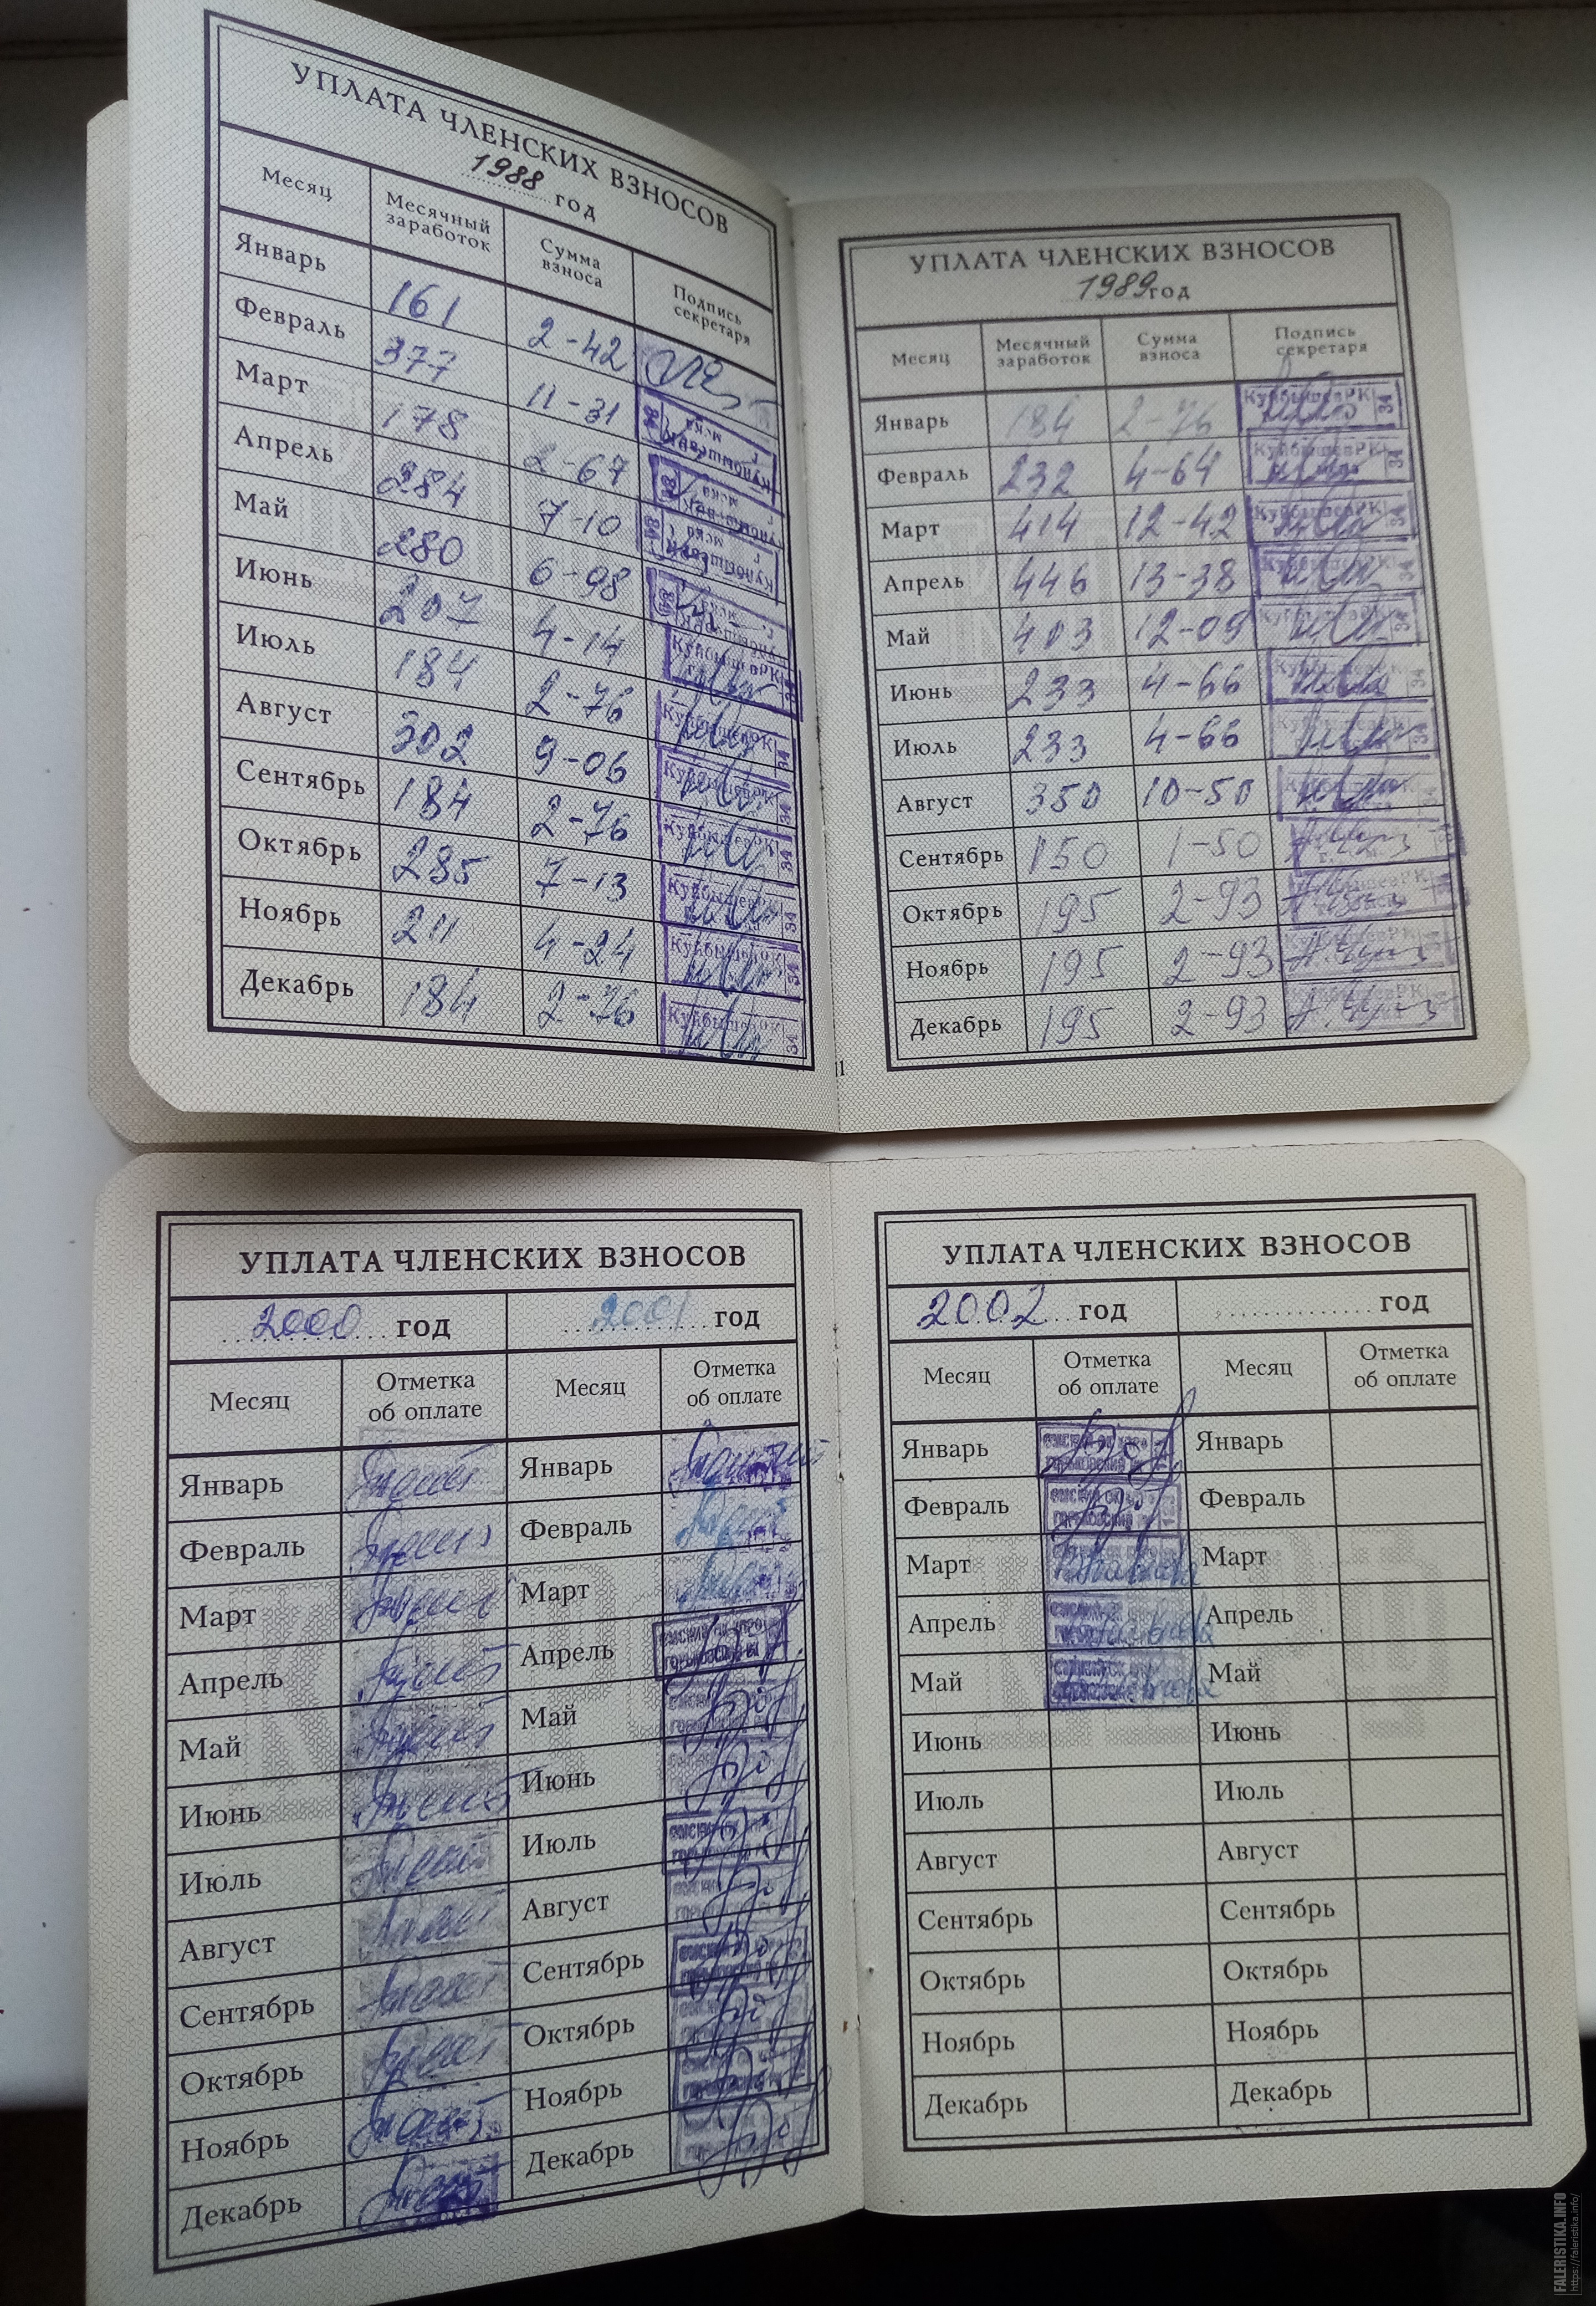 УПЛАТА ЧЛЕНСКИХ ВЗНОСОВ
1988 год
Месяц Месячный заработок Сумма взноса Подпись секретаря
Январь 161 2-42
Февраль 377 11-31
Март 178 2-67
Апрель 284 7-10
Май 280 6-98
Июнь 207 4-14
Июль 184 2-76
Август 302 9-06
Сентябрь 184 2-76
Октябрь 285 7-13
Ноябрь 211 4-24
Декабрь 184 2-76
УПЛАТА ЧЛЕНСКИХ ВЗНОСОВ
1989 год
Месяц Месячный заработок Сумма взноса Подпись секретаря
Январь 184 2-76 КуйбышевРК 34
Февраль 232 4-64 КуйбышевРК 34
Март 414 12-42 КуйбышевРК 34
Апрель 446 13-38 34
Май 403 12-09 34
Июнь 233 4-66 34
Июль 233 4-66 34
Август 350 10-50
Сентябрь 150 1-50
Октябрь 195 2-93
Ноябрь 195 2-93
Декабрь 195 2-93
11
УПЛАТА ЧЛЕНСКИХ ВЗНОСОВ
2000 год 2001 год
Месяц Отметка об оплате Месяц Отметка об оплате
Январь Январь
Февраль Февраль
Март Март
Апрель Апрель
Май Май
Июнь Июнь
Июль Июль
Август Август
Сентябрь Сентябрь
Октябрь Октябрь
Ноябрь Ноябрь
Декабрь Декабрь
УПЛАТА ЧЛЕНСКИХ ВЗНОСОВ
2002 год год
Месяц Отметка об оплате Месяц Отметка об оплате
Январь Январь
Февраль Февраль
Март Март
Апрель Апрель
Май Май
Июнь Июнь
Июль Июль
Август Август
Сентябрь Сентябрь
Октябрь Октябрь
Ноябрь Ноябрь
Декабрь Декабрь
FALERISTIKA.INFO
https://faleristika.info/